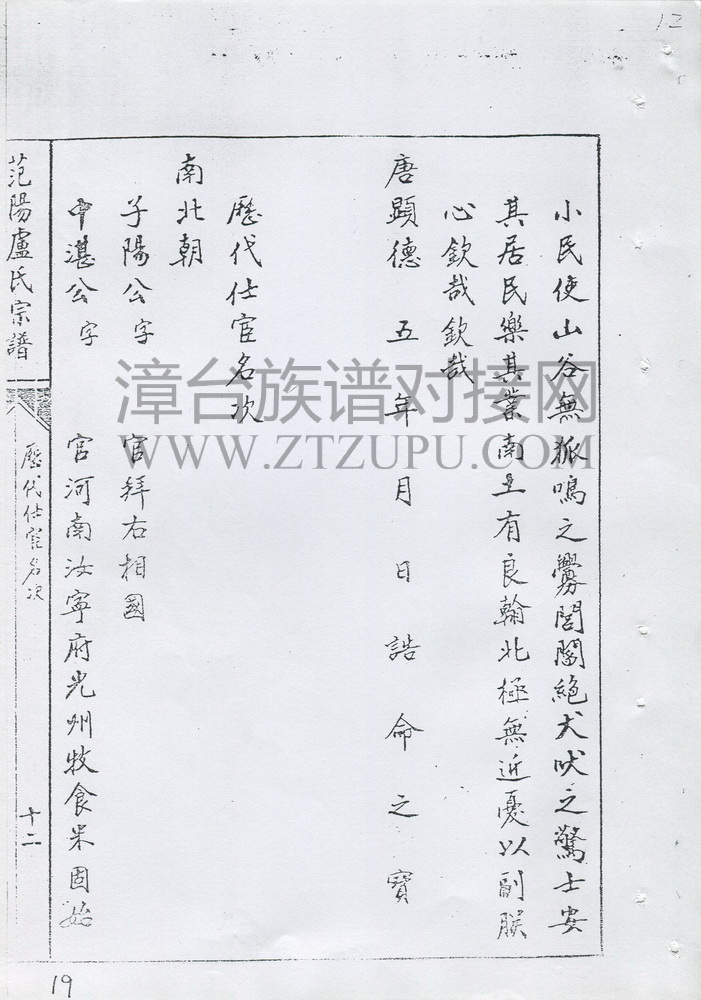 12
小民使山谷無狐鳴之釁閭閻絕犬吠之驚士安
其居民樂其業南土有良翰北極無近憂以副朕
心欽哉欽哉
唐顯德五年月日誥命之寶
歷代仕宦名次
南北朝
子陽公字 官拜右相國
中湛公字 官河南汝寧府光州牧食采固始
范陽盧氏宗譜
歷代仕宦名次
十二
19
漳台族谱对接网
WWW.ZTZUPU.COM